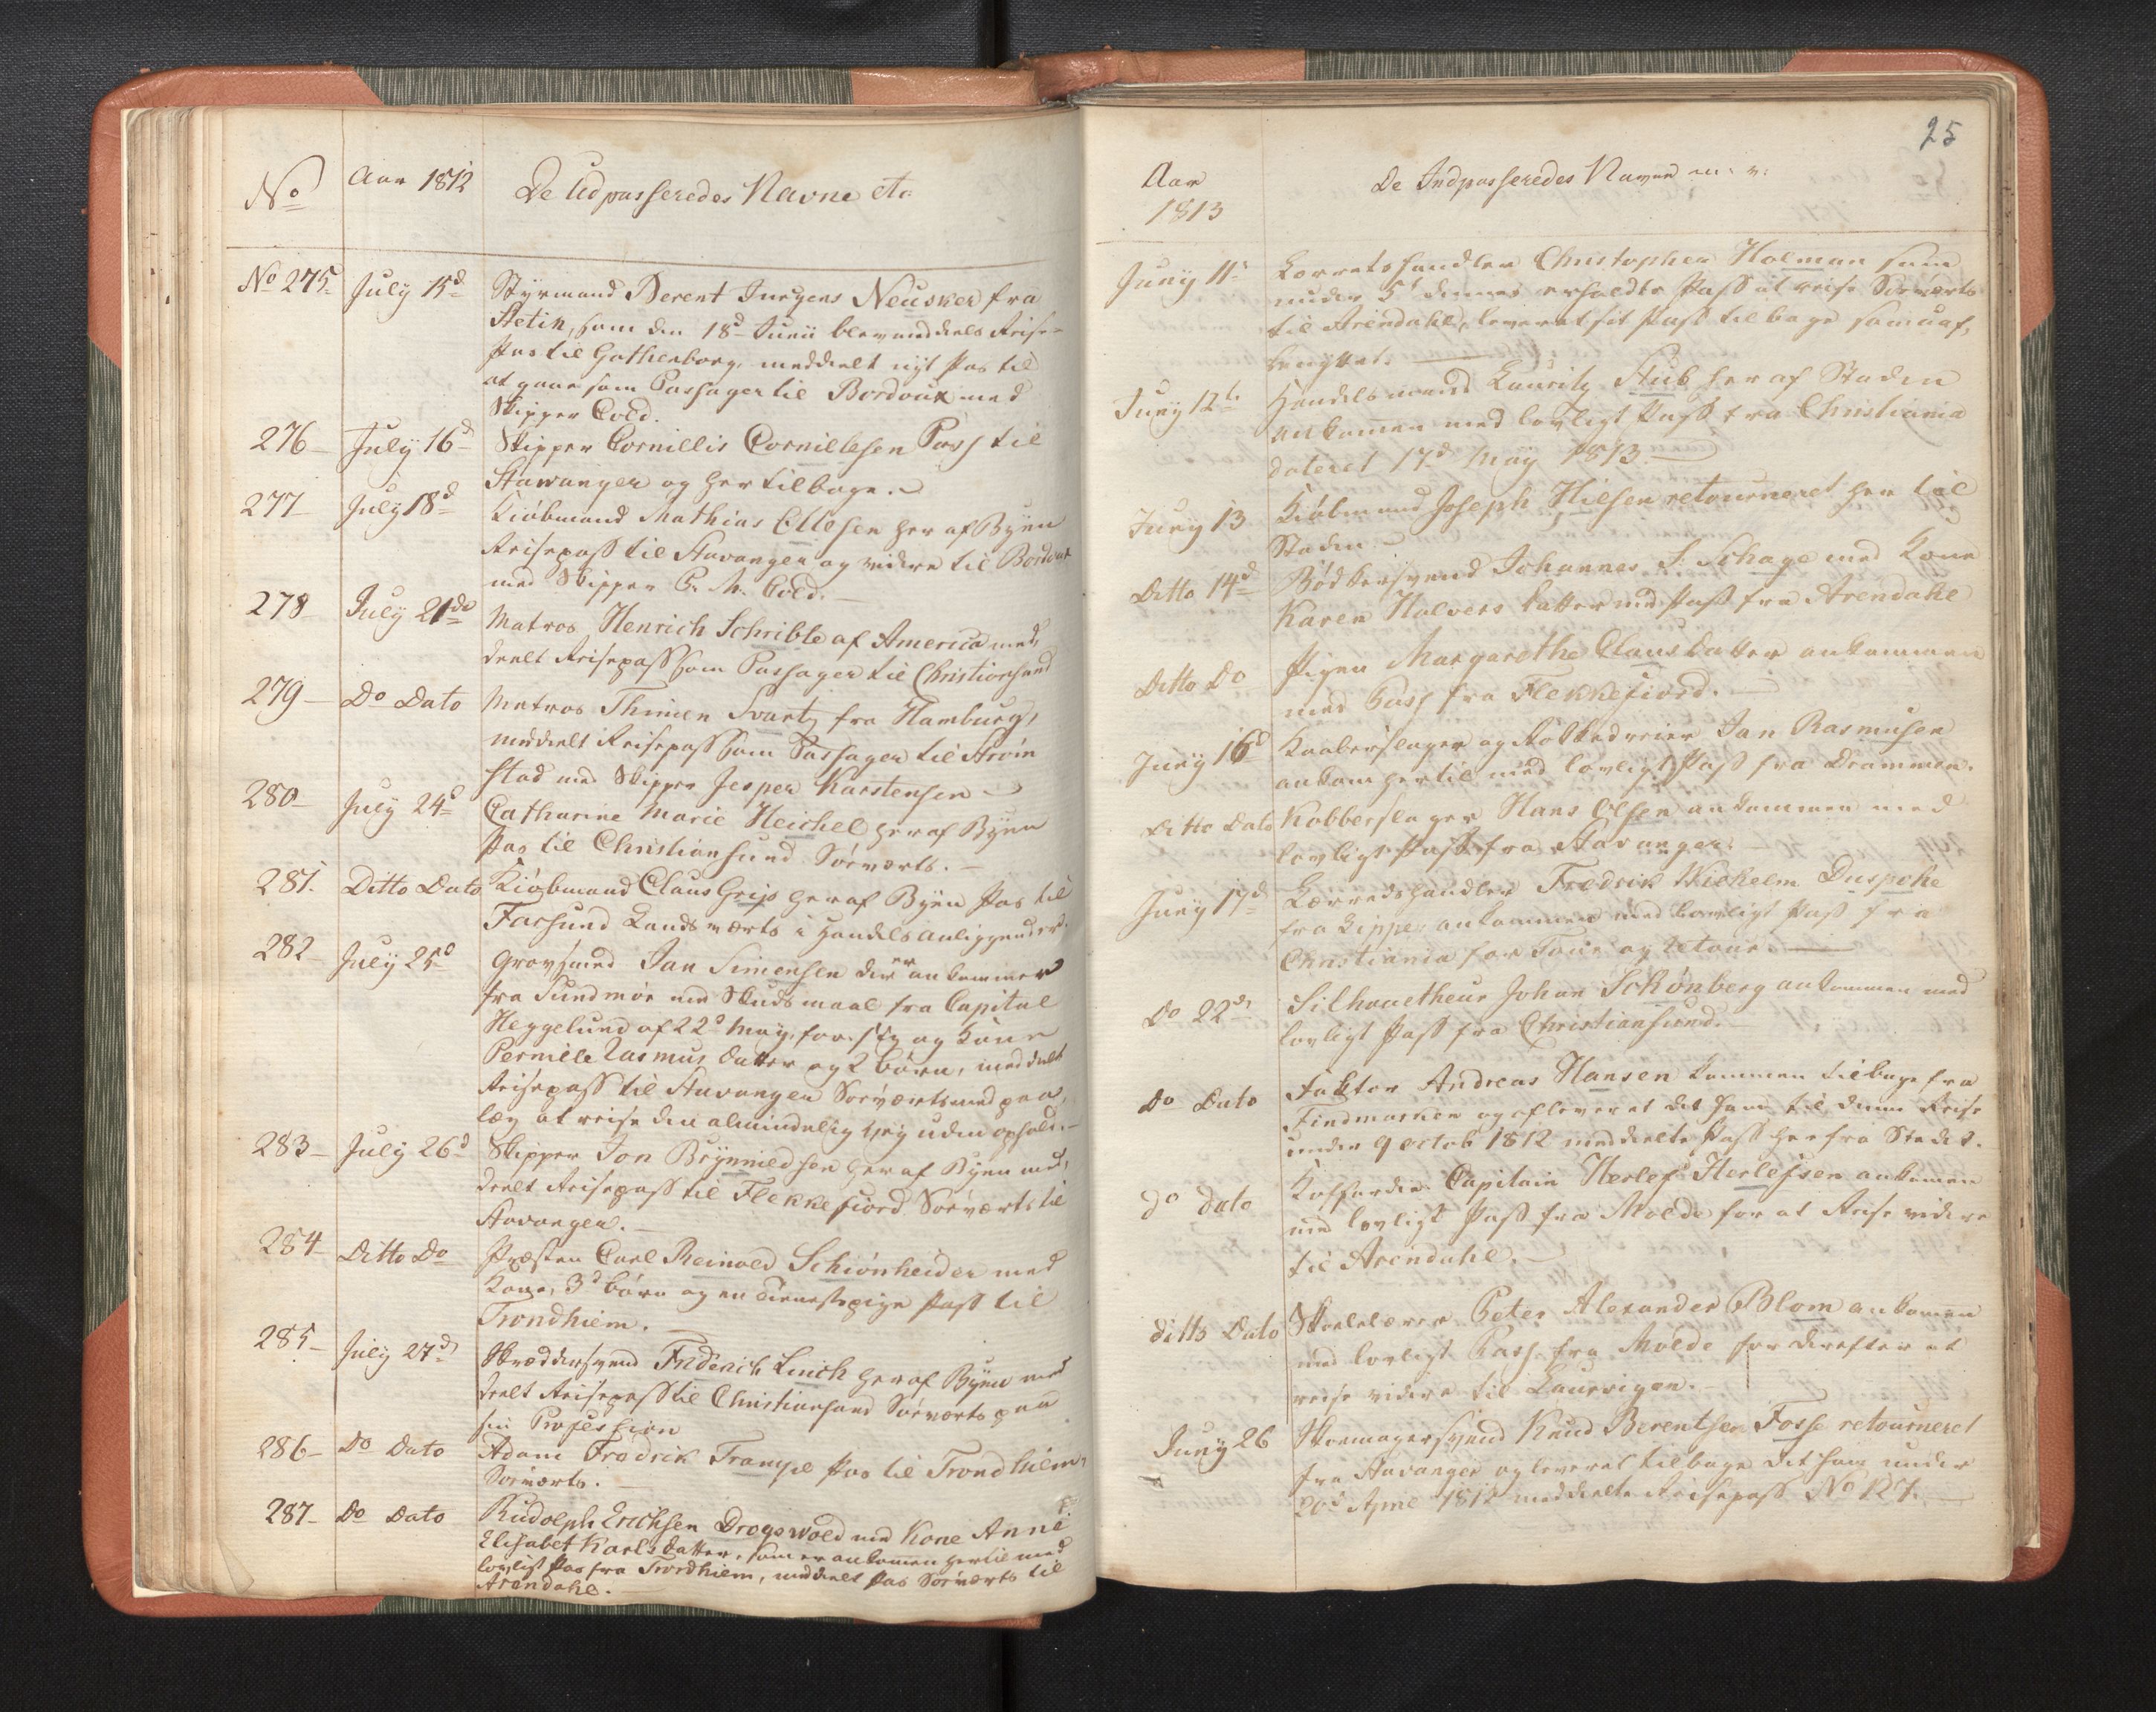 No
Aar 1812
De Udpasseredes Navne etc
No 275
July 15d
Styrmand Berent Jurgens Neusker fra
Stetin, som den 18d Junii blev meddeels Reise-
Pas til Gothenborg, meddeelt nyt Pas til
at gaae som Passager til Bordoux med
Skipper Cold.
276
July 16d
Skipper Cornillis Cornillesen Pass til
Stavanger og her tilbage.
277
July 18d
Kiøbmand Mathias Ellesen her af Byen
Reisepass til Stavanger og videre til Bordoux
med Skipper C. M. Cold.
278
July 21de
Matros Henrich Schrible af America med
deelt Reisepass som Passager til Christiansand
279
Do Dato
Matros Thimen Svartz fra Hamburg,
meddeelt Reisepass som Passager til Strøm
stad med Skipper Jesper Karstensen
280
July 24d
Catharine Marie Heichel her af Byen
Pas til Christiansund Søeværts.
281.
Ditto Dato
Kiøbmand Claus Grip her af Byen Pas til
Farsund Landsværts i Handels Anliggender.
282
July 25d
Grovsmed Jan Simensen der er ankommen
fra Sundmør med Skudsmaal fra Capital
Heggelund af 22d May, for sig og Kone
Pernille Rasmus datter og 2 børn, meddeelt
Reisepass til Stavanger Søeværts med paa,
læg at reise den almindelig Vej uden ophold.
283
July 26d
Skipper Jon Brynnildsen her af Byen med,
deelt Reisepass til Flekkefiord Søeværts til
Stavanger.
284
Ditto Do
Præsten Carl Reinold Schiønheider med
Kone, 3d børn og en Tienestepige Pass til
Trondhiem.
285
July 27d
Skræddersvend Friderich Linch her af Byen med
deelt Reisepass til Christiansand Søeværts paa
sin Profession
286
Do Dato
Adam Fredrik Trampe Pas til Trondhiem,
Søeværts.
287
Do Dato
Rudolph Erichsen Drogswold med Kone Anne
Elisabet Karls datter, som er ankommen hertil med
lovligt Pas fra Trondhiem, meddeelt Pas Søeværts til
Arendahl.
25
Aar
1813
De Indpasseredes Navne m: v:
Juny 11te
Lærretshandler Christopher Holman som
under 5t dennes erholdte Pass at reise Søeværts
til Arendahl, leveret sit Pass tilbage som uaf,
benyttet.
Juny 12te
Handelsmand Lauritz Stub her af Staden
ankommen med lovligt Pass fra Christiania
dateret 17d May 1813
Juny 13
Kiøbmand Joseph Hielsen retourneret her til
Staden
Ditto 14d
Bødkersvend Johannes J. Schage med Kone
Karen Halvers datter med Pass fra Arendahl
Ditto Do
Pigen Margarethe Claus datter ankommen
med Pass fra Flekkefiord.
Juny 16d
Kaaberslager og Rokkedreier Jan Rasmusen
ankom hertil med lovligt Pass fra Drammen.
Ditto Dato
Kobberslager Hans Olsen ankommen med
lovligt Pass fra Stavanger.
Juny 17d
Lærredshandler Fredrik Wilhelm Duspohl
fra Lippe ankommen med lovligt Pass fra
Christiania for Tour og Retour.
Do 22de
Silhouetheur Johan Schønberg ankommen med
lovligt Pass fra Christiansund.
Do Dato
Faktor Andreas Hansen kommen tilbage fra
Findmarken og afleveret det ham til denne Reise
under 9 octob 1812 meddeelte Pass her fra Stedet.
do dato
Koffardie Capitain Herlef Herlefsen ankomen
med lovligt Pass fra Molde for at Reise videre
til Arendahl.
ditto Dato
Skolelærer Peter Alexander Blom ankomen
med lovligt Pass fra Molde for derefter at
reise videre til Laurvigen.
Juny 26
Skomagersvend Knud Berentsen Fosse retourneret
fra Stavanger og leveret tilbage det ham under
20d April 1812 meddeelte Reisepass No 127.